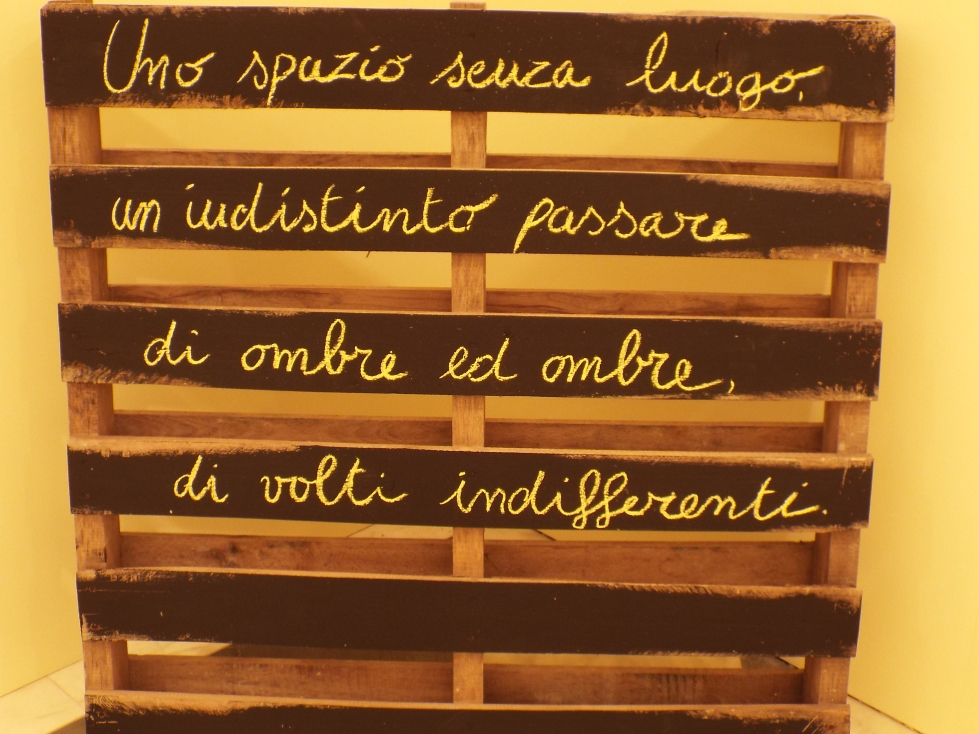 Uno spazio senza luogo,
un indistinto passare
di ombre ed ombre,
di volti indifferenti.